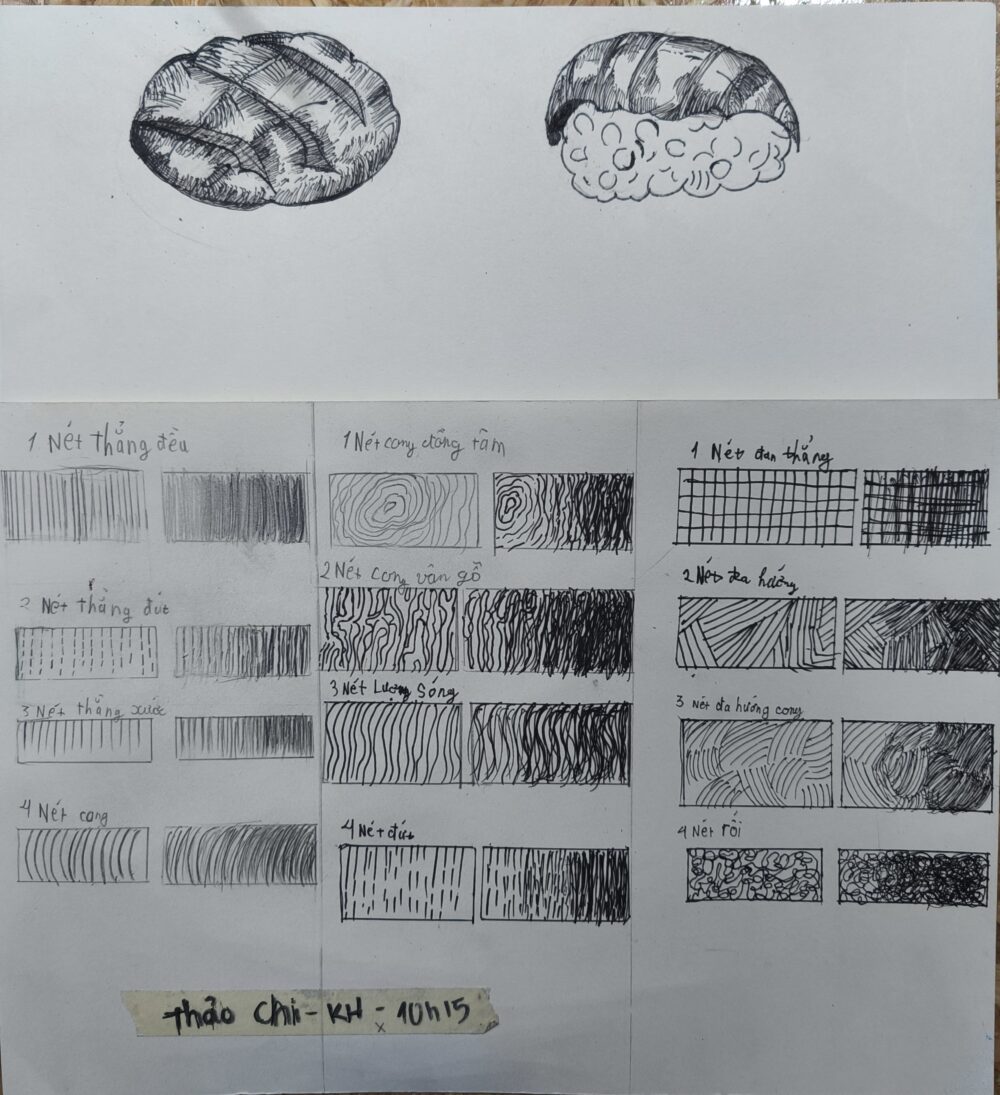 1 Nét thẳng đều
2 Nét thẳng đứt
3 Nét thẳng xước
4 Nét cong
1 Nét cong đồng tâm
2 Nét cong vân gỗ
3 Nét Lượng Sóng
4 Nét đứt
1 Nét đan thẳng
2 Nét đa hướng
3 Nét đa hướng cong
4 Nét rối
Thảo Chi - KH - 10h15